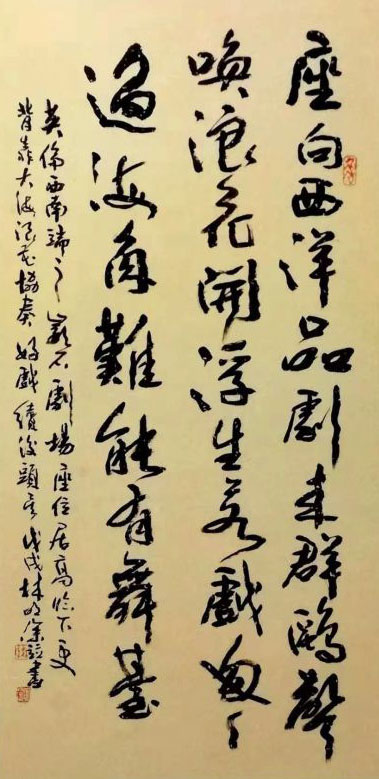 座向西洋品劇來群鷗聲
喚浪花開浮生若戲匆々
過海角難能有舞臺
英倫西南端之巖石劇場座位居高臨下更
背靠大海浪花協奏好戲續後頭 戊戌林 書